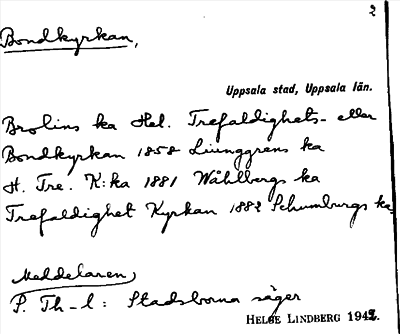 2
Bondkyrkan,
Uppsala stad, Uppsala län.
Brolins ka Hel. Trefaldighets- eller
Bondkyrkan 1858 Ljunggrens ka
H. Tre. K:ka 1881 Wåhlbergs ka
Trefaldighet Kyrkan 1882 Schumburgs ka.
Meddelaren
P. Th-l: Stadsborna säger
HELGE LINDBERG 1942.